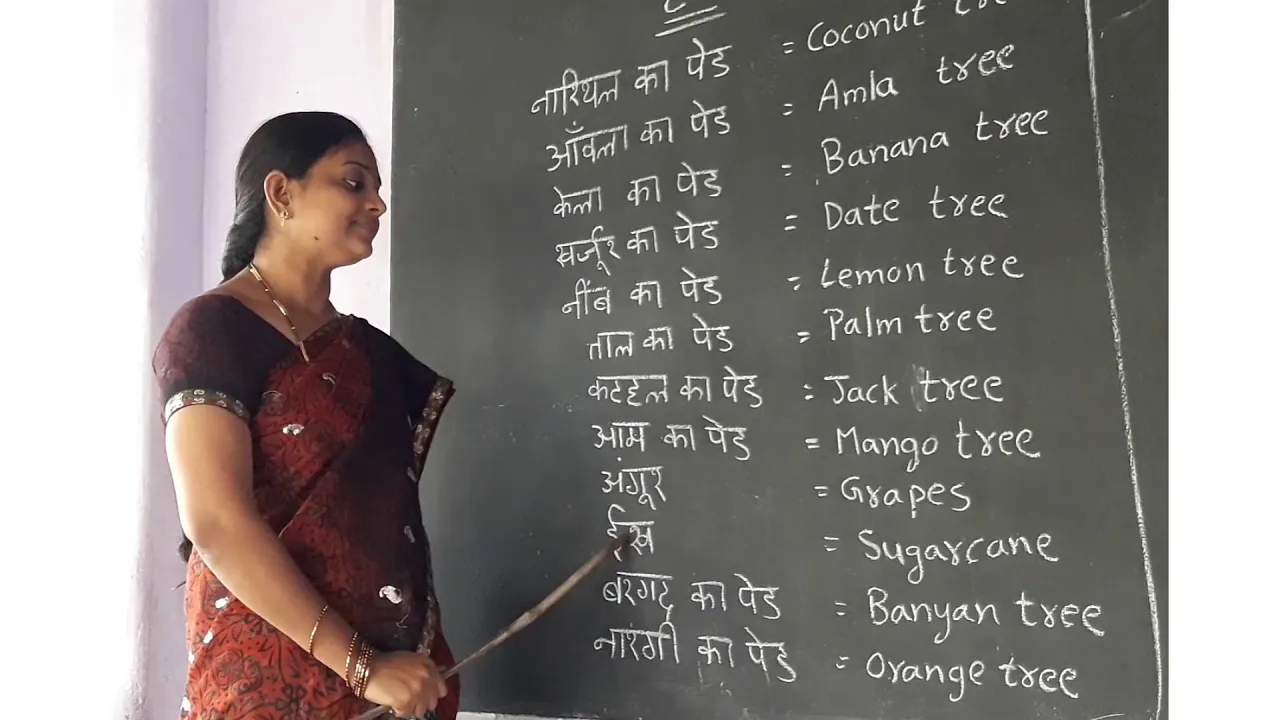 नारियल का पेड = Coconut
आँवला का पेड = Amla tree
केला का पेड = Banana tree
खर्जूर का पेड = Date tree
नींब का पेड = Lemon tree
ताल का पेड = Palm tree
कटहल का पेड = Jack tree
आम का पेड = Mango tree
अंगूर = Grapes
ईख = Sugarcane
बरगद का पेड = Banyan tree
नारंगी का पेड = Orange tree